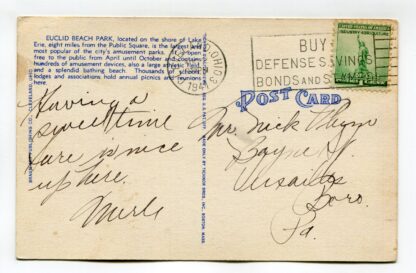 EUCLID BEACH PARK, located on the shore of Lake
Erie, eight miles from the Public Square, is the largest and
most popular of the city's amusement parks. A park open
free to the public from April until October and contains
hundreds of amusement devices, also a large athletic field,
and a splendid bathing beach. Thousands of schools,
lodges and associations hold annual picnics and outings
here.
CLEVELAND, OHIO
1941
BUY
DEFENSE SAVINGS
BONDS AND STAMPS
UNITED STATES OF AMERICA
INDUSTRY AGRICULTURE
POST CARD
PUBLISHING CO., CLEVELAND, OHIO
BY TICHNOR BROS., INC., BOSTON, MASS.
Having a
good time
sure is nice
up here.
Merle
Mr. Nick
St.
Versailles
Boro.
Pa.